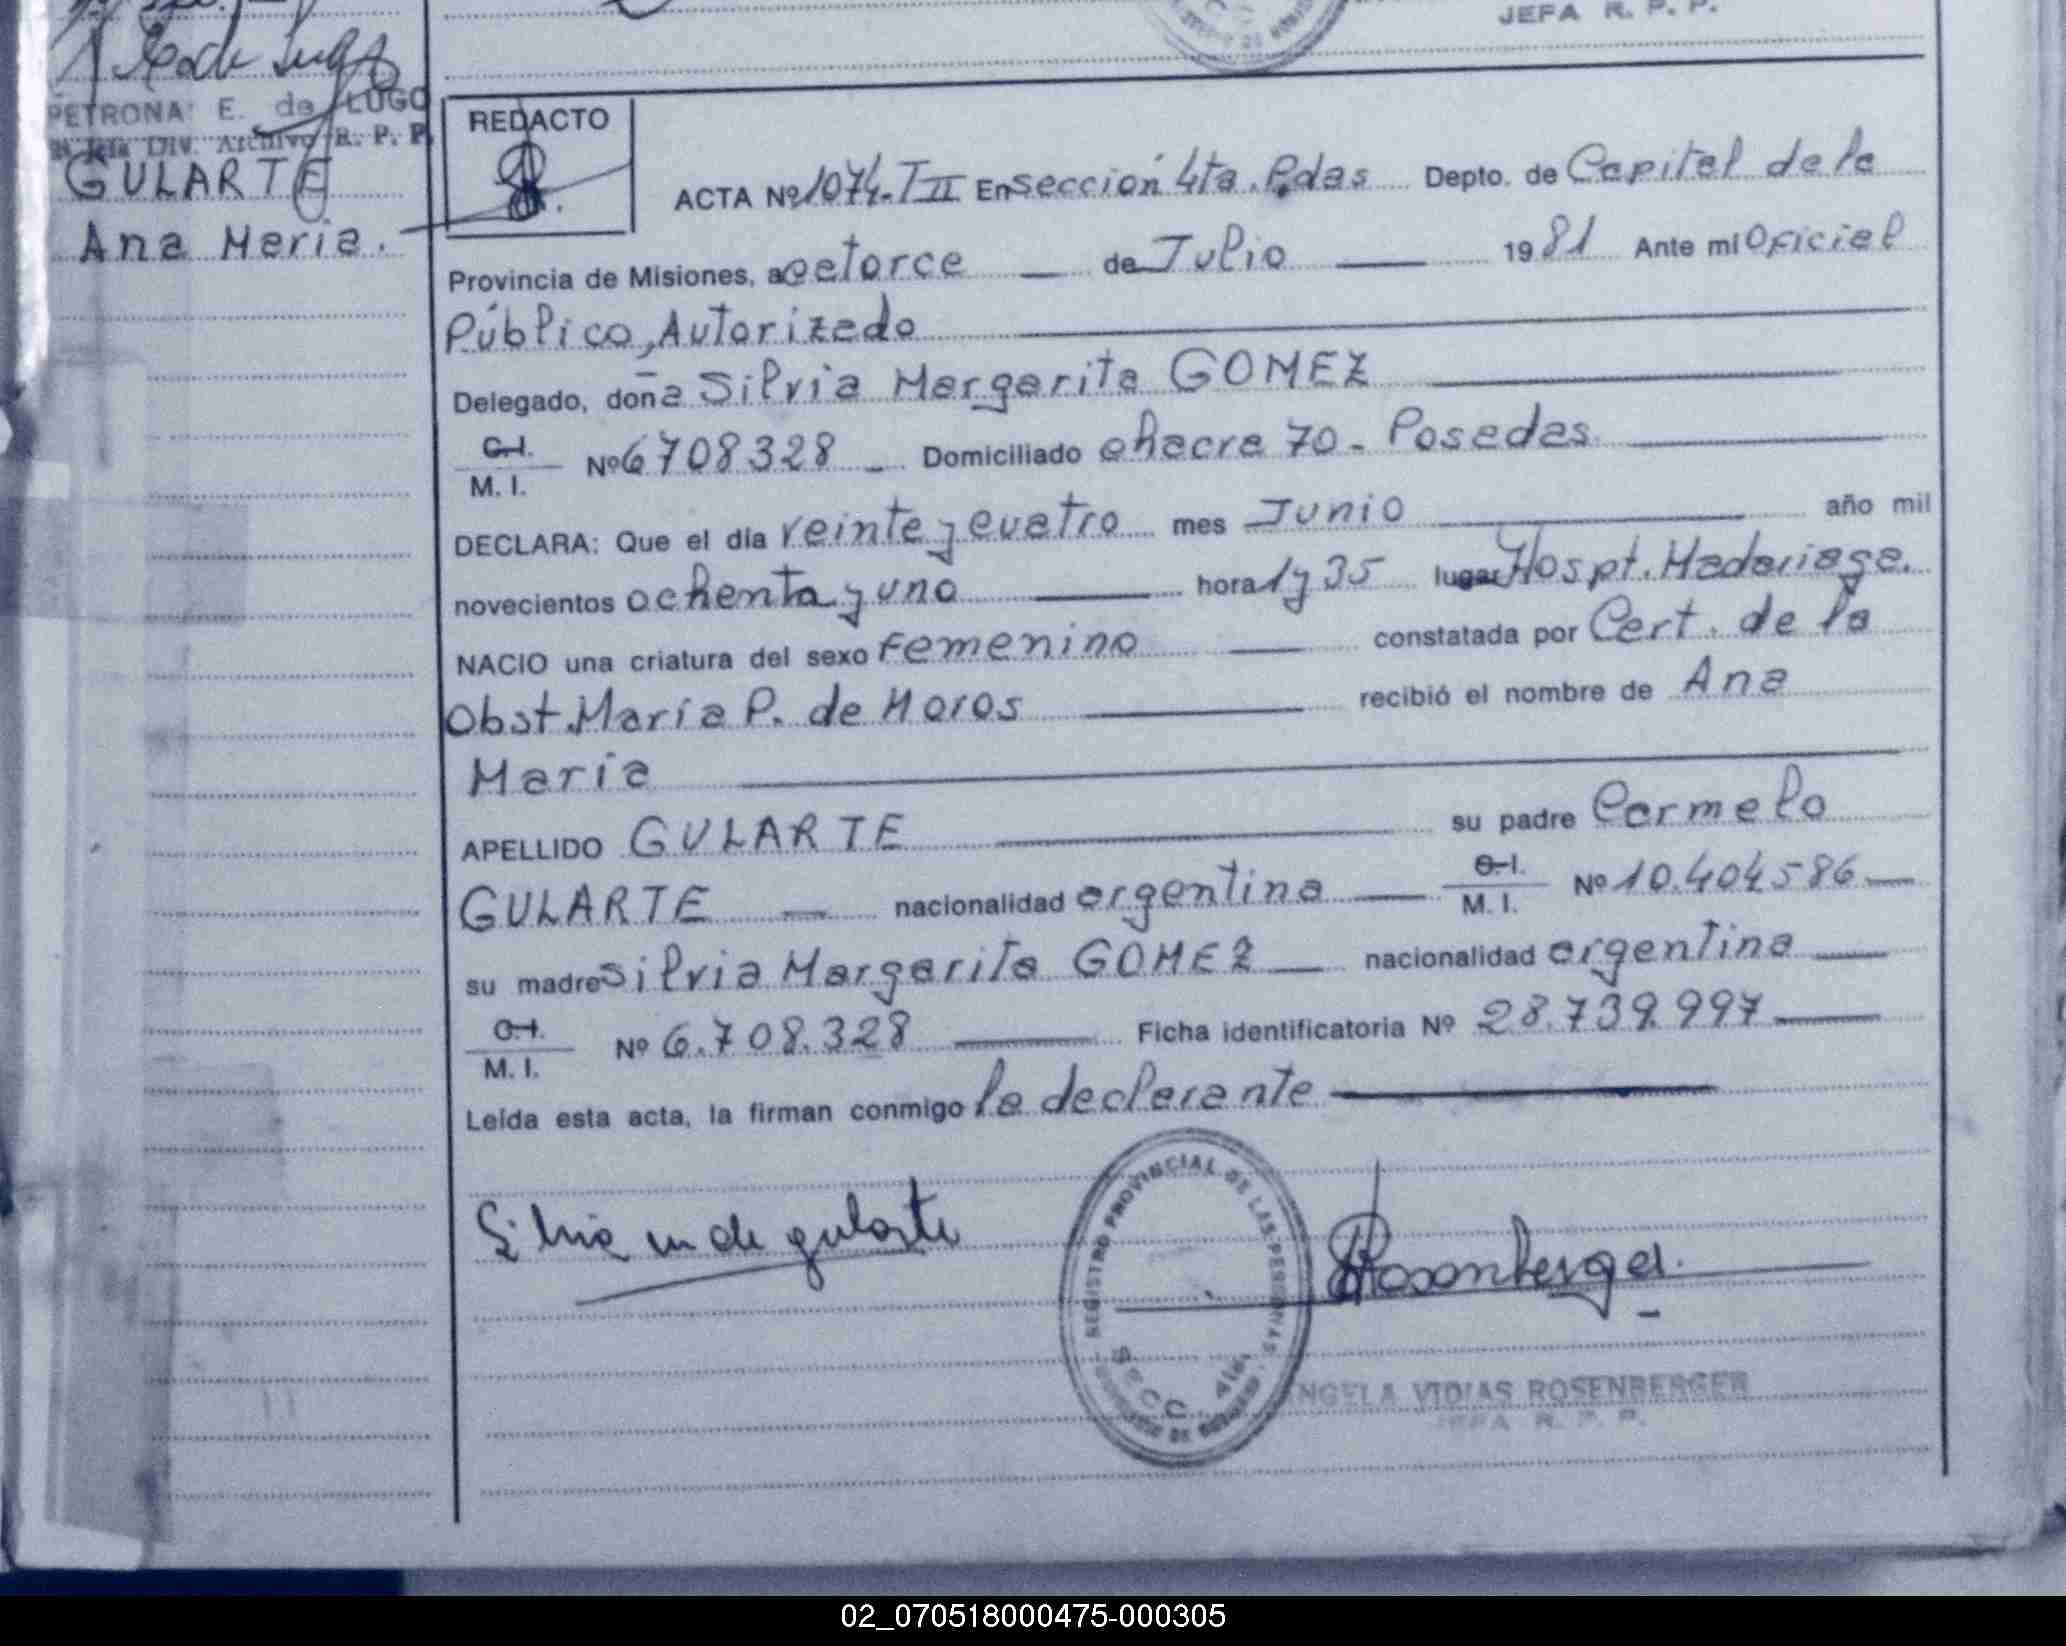 JEFA R. P. P.
PETRONA E. de LUGO
DIV. Archivo R. P. P.
GULARTE
Ana Maria.
REDACTO
ACTA Nº 1074-T II En sección 4ta. Pdas Depto. de Capital de la
Provincia de Misiones, a catorce de Julio 1981 Ante mí Oficial
Público, Autorizado
Delegado, doña Silvia Margarita GOMEZ
C.I.
M. I. Nº 6708328 Domiciliado chacra 70 - Posadas
DECLARA: Que el día veinte y cuatro mes Junio año mil
novecientos ochenta y uno hora 1 y 35 lugar Hospt. Madariaga.
NACIO una criatura del sexo Femenino constatada por Cert. de la
Obst. María P. de Moros recibió el nombre de Ana
María
APELLIDO GULARTE su padre Carmelo
GULARTE nacionalidad argentina C.I. M. I. Nº 10.404586
su madre Silvia Margarita GOMEZ nacionalidad argentina
C.I.
M. I. Nº 6.708.328 Ficha identificatoria Nº 28.739.997
Leída esta acta, la firman conmigo la declarante
Silvia m de gularte
Rosenberger
REGISTRO PROVINCIAL DE LAS PERSONAS
SECC. 4ta.
ANGELA VIDIAS ROSENBERGER
JEFA R. P. P.
02_070518000475-000305